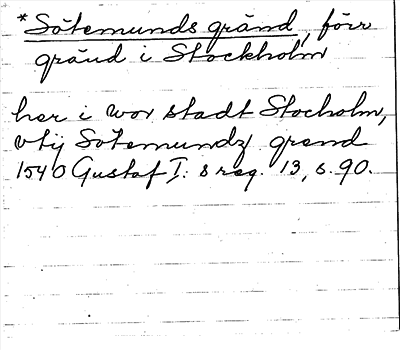 *Sötemunds gränd, förr
gränd i Stockholm
her i wor stadt Stocholm,
vtij Sotemundz grend
1540 Gustaf I:s reg. 13, s. 90.